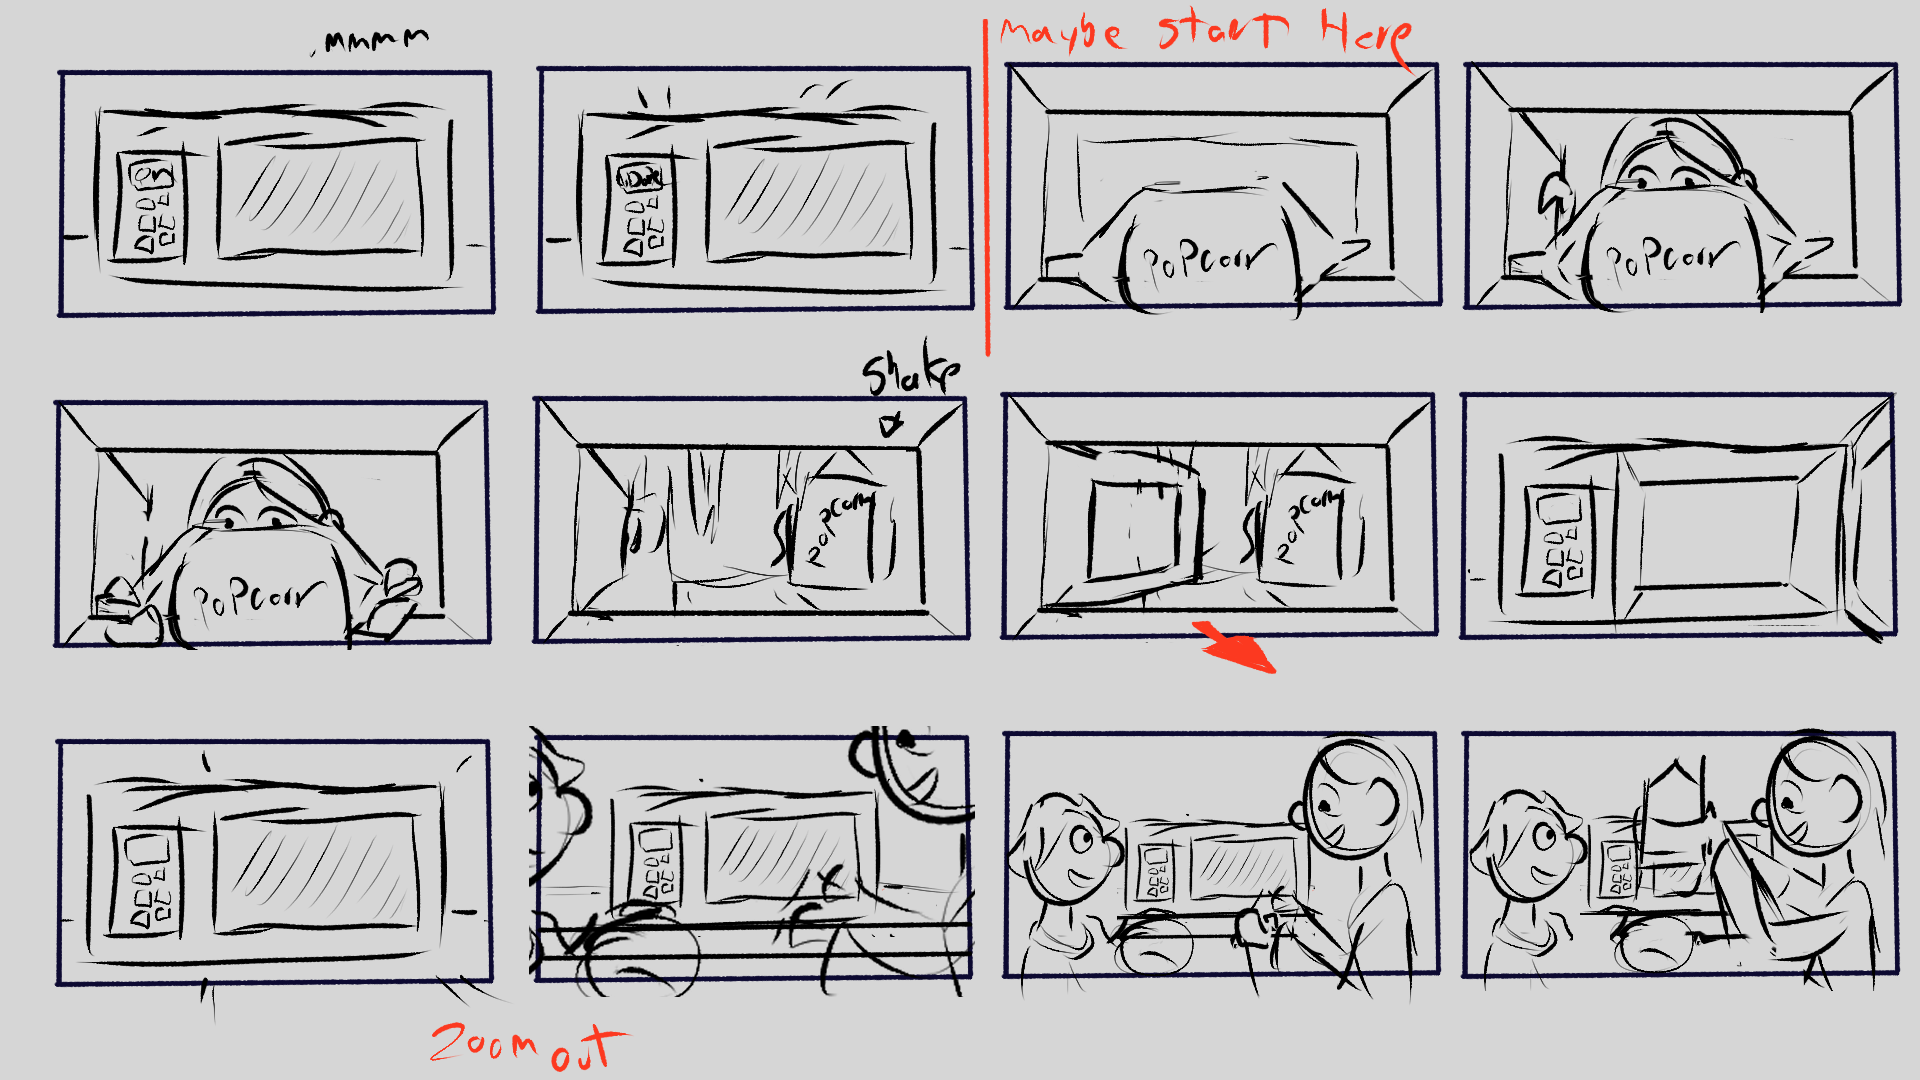 mmmm
Maybe Start Here
On
Done
PoPcorn
PoPcorn
Shake
PoPcorn
PoPcorn
PoPcorn
Zoom out